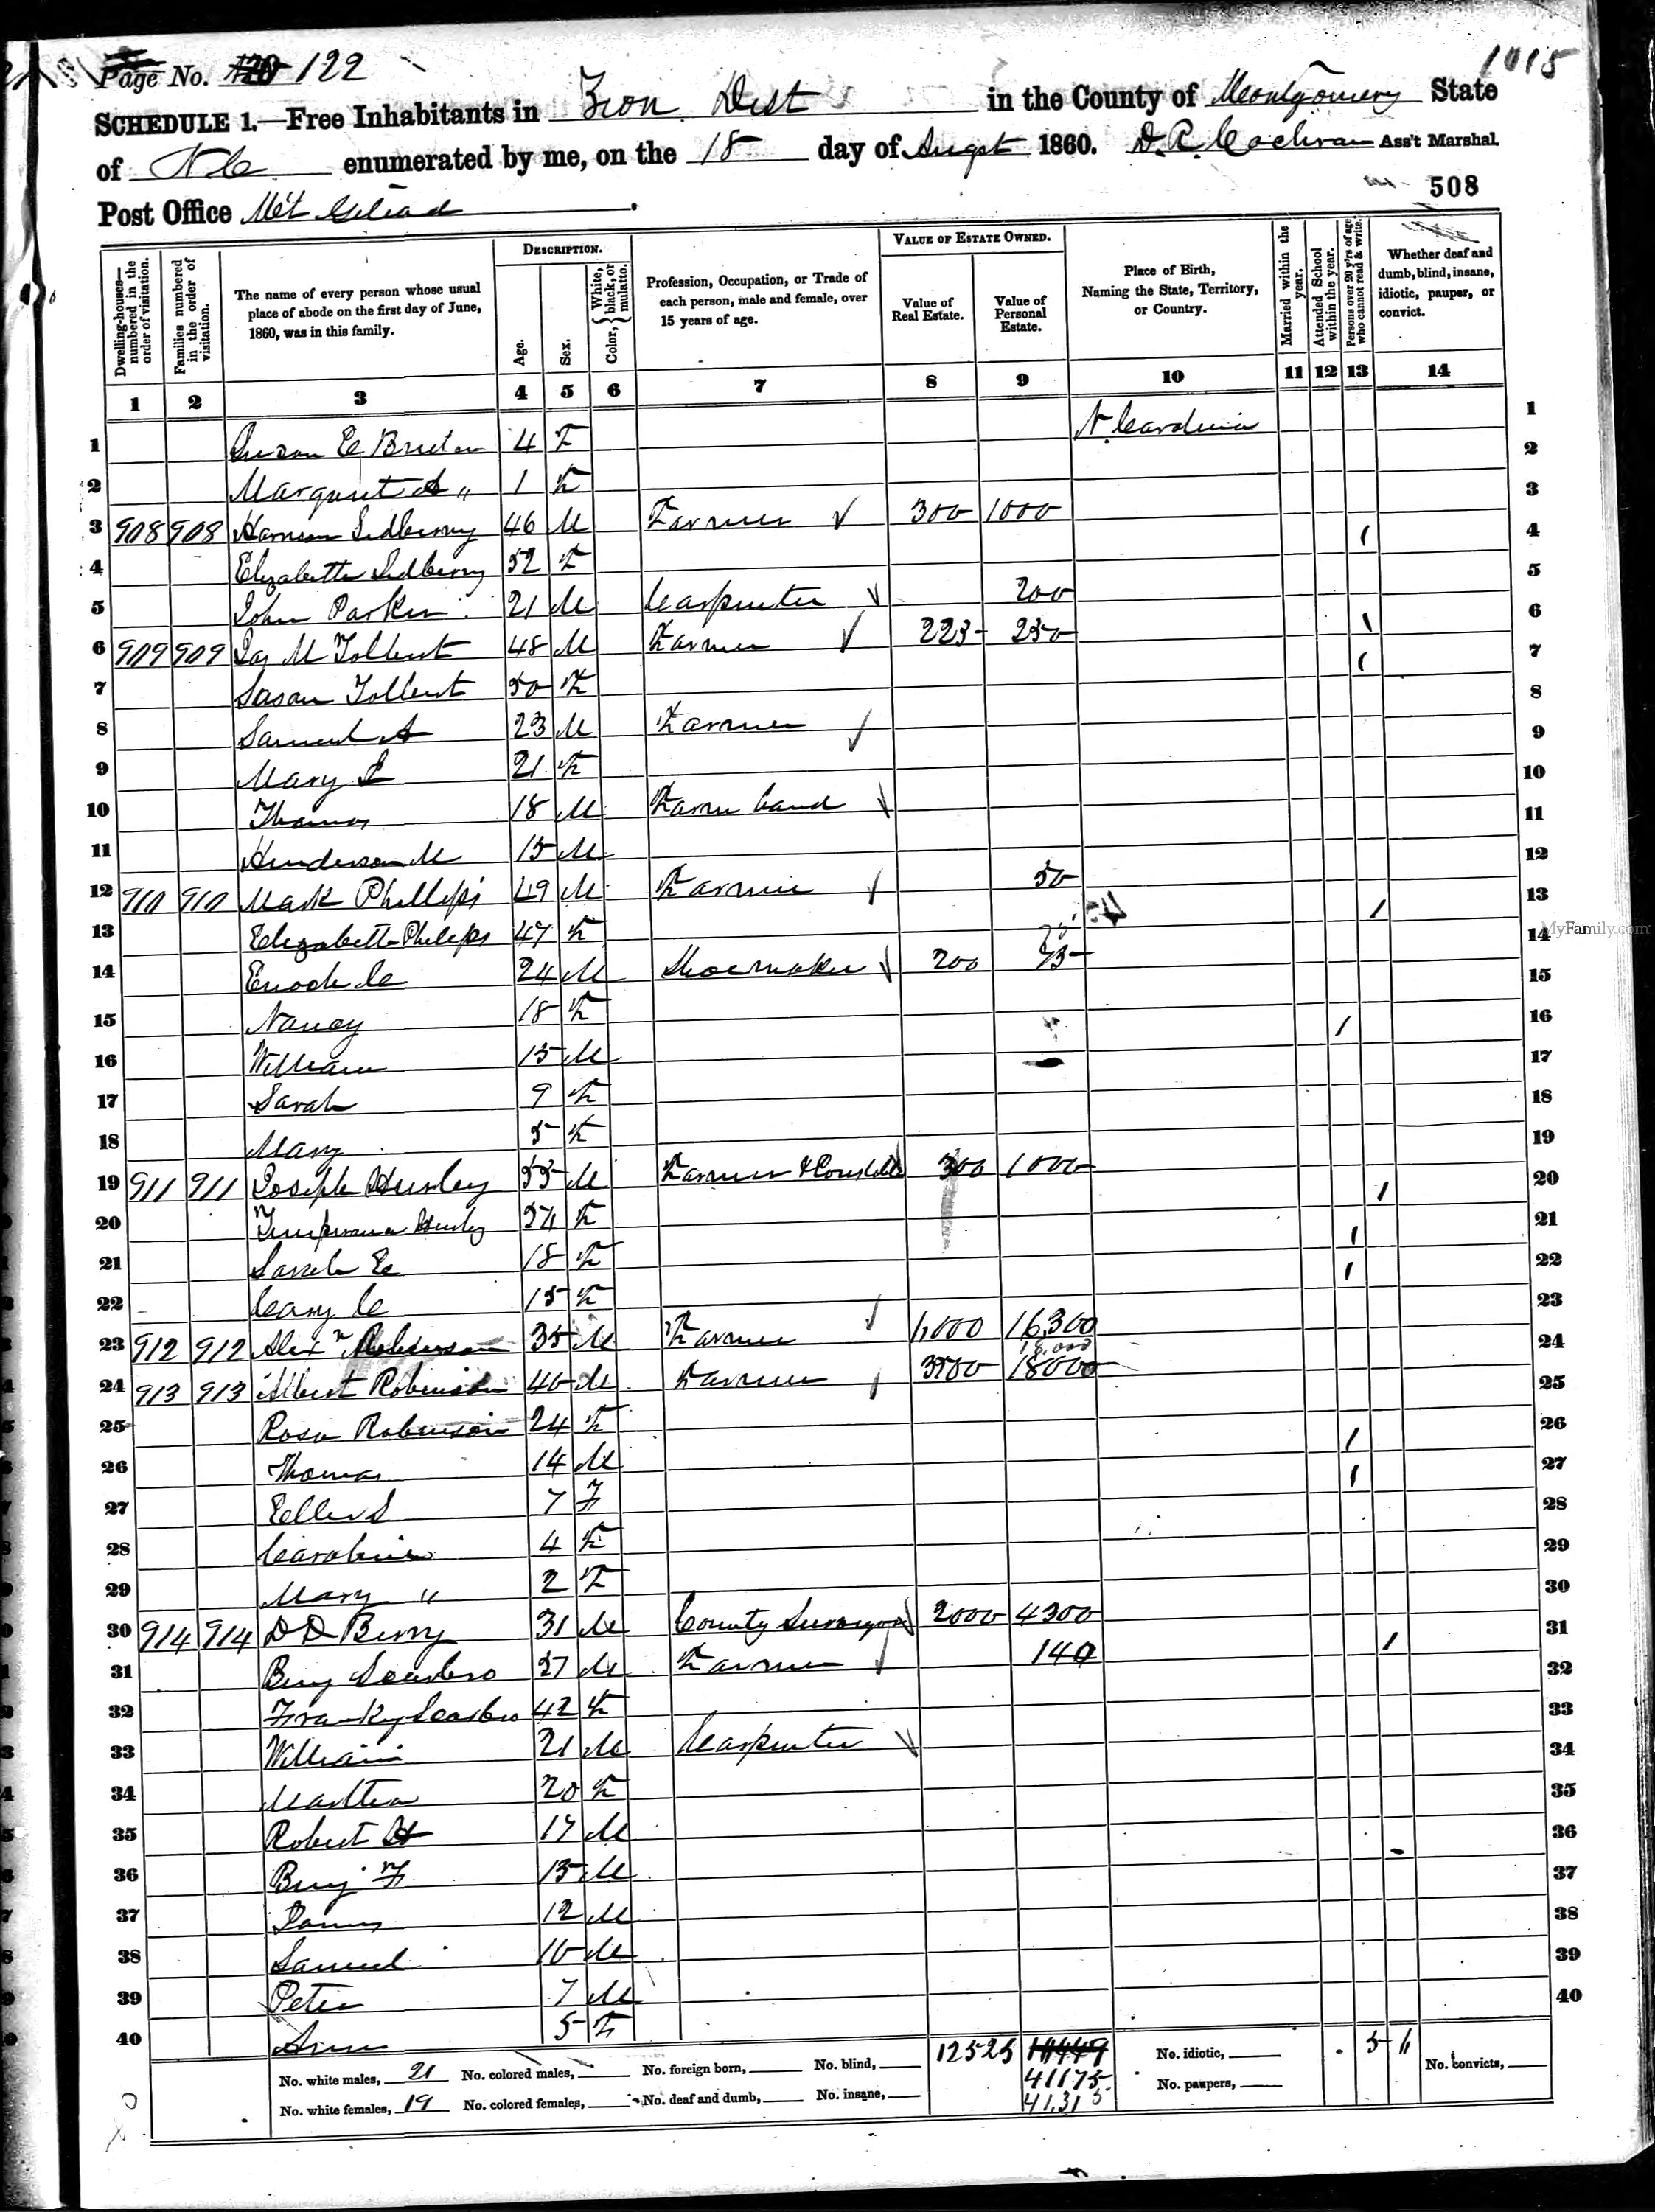 Page No. 122
1015
SCHEDULE 1.—Free Inhabitants in Zion Dist in the County of Montgomery State
of N C enumerated by me, on the 18 day of Augst 1860. D. R. Cochran Ass't Marshal.
508
Post Office Mt Gilead
Dwelling-houses—numbered in the order of visitation.
Families numbered in the order of visitation.
The name of every person whose usual place of abode on the first day of June, 1860, was in this family.
DESCRIPTION.
Age.
Sex.
Color, { White, black, or mulatto.
Profession, Occupation, or Trade of each person, male and female, over 15 years of age.
VALUE OF ESTATE OWNED.
Value of Real Estate.
Value of Personal Estate.
Place of Birth, Naming the State, Territory, or Country.
Married within the year.
Attended School within the year.
Persons over 20 y'rs of age who cannot read & write.
Whether deaf and dumb, blind, insane, idiotic, pauper, or convict.
1 2 3 4 5 6 7 8 9 10 11 12 13 14
1 Susan E 4 F N. Carolina 1
2 Margaret A " 1 F 2
3 908 908 46 M Farmer 300 1000 3
4 Elizabeth 52 F 4
5 John Parker 21 M Carpenter 200 5
6 909 909 Jas M Tolbert 48 M Farmer 223 250 6
7 Susan Tolbert 50 F 7
8 Samuel A 23 M Farmer 8
9 Mary 21 F 9
10 Thomas 18 M Farm hand 10
11 Henderson M 15 M 11
12 910 910 Mark Phillips 49 M Farmer 50 12
13 Elizabeth Philips 47 F 13
14 Enoch C 24 M Shoemaker 200 75 14
15 Nancy 18 F 15
16 William 15 M 16
17 Sarah 9 F 17
18 Mary 5 F 18
19 911 911 Joseph Hurley 55 M Farmer & Constable 300 1000 19
20 Hurley 54 F 20
21 Sarah E 18 F 21
22 C 15 F 22
23 912 912 Alex 35 M Farmer 1,000 16,300 23
18,000
24 913 913 Albert Robinson 40 M Farmer 3500 18000 24
25 Rosa Robinson 24 F 25
26 Thomas 14 M 26
27 Ellen S 7 F 27
28 Caroline 4 F 28
29 Mary " 2 F 29
30 914 914 D D Berry 31 M County Surveyor 2000 4300 30
31 M Farmer 140 31
32 Franky 42 F 32
33 William 21 M Carpenter 33
34 Martha 20 F 34
35 Robert H 17 M 35
36 Benj F 15 M 36
37 James 12 M 37
38 Samuel 10 M 38
39 Peter 7 M 39
40 Ann 5 F 40
No. white males, 21 No. colored males, No. foreign born, No. blind, 12525 No. idiotic, 5 11 No. convicts,
41175
No. white females, 19 No. colored females, No. deaf and dumb, No. insane, No. paupers,
41,315
MyFamily.com